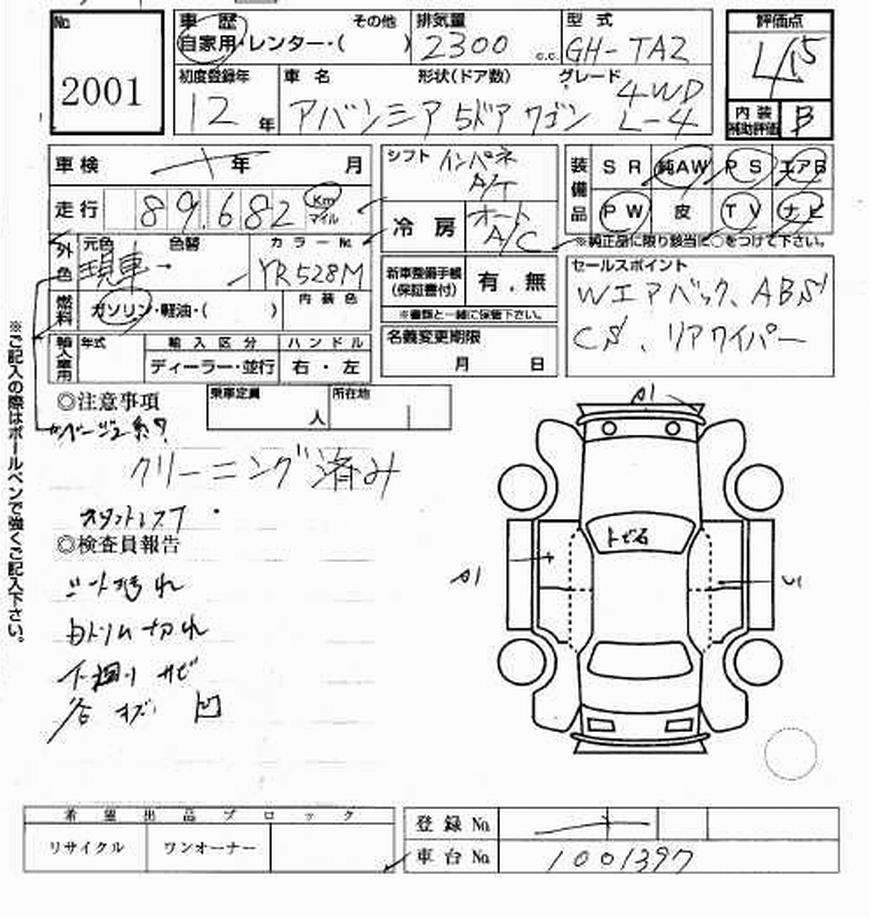 No. 2001
車歴 その他 排気量 型式 評価点
自家用・レンター・( ) 2300 c.c. GH-TA2 4.5
初度登録年 車名 形状(ドア数) グレード
12年 アバンシア 5ドア ワゴン 4WD L-4
内装補助評価 B
車検 年 月
走行 89,682 Km マイル
シフト インパネ A/T
冷房 オート A/C
装備品 SR 純AW PS エアB
PW 皮 TV ナビ
※純正品に限り該当に○をつけて下さい。
外色 元色 色替 カラーNo.
現車 YR528M
燃料 ガソリン・軽油・( ) 内装色
新車整備手帳(保証書付) 有・無
※書類と一緒に保管下さい。
セールスポイント
Wエアバック、ABS
CS、リアワイパー
輸入車用 年式 輸入区分 ハンドル
ディーラー・並行 右・左
名義変更期限
月 日
◎注意事項 乗車定員 人 所在地
クリーニング済み
◎検査員報告
シート汚れ
内トリム切れ
下廻りサビ
各 キズ 凹
A1
トビ石
A1
※ご記入の際はボールペンで強くご記入下さい。
希望出品ブロック
リサイクル ワンオーナー
登録No.
車台No. 1001397